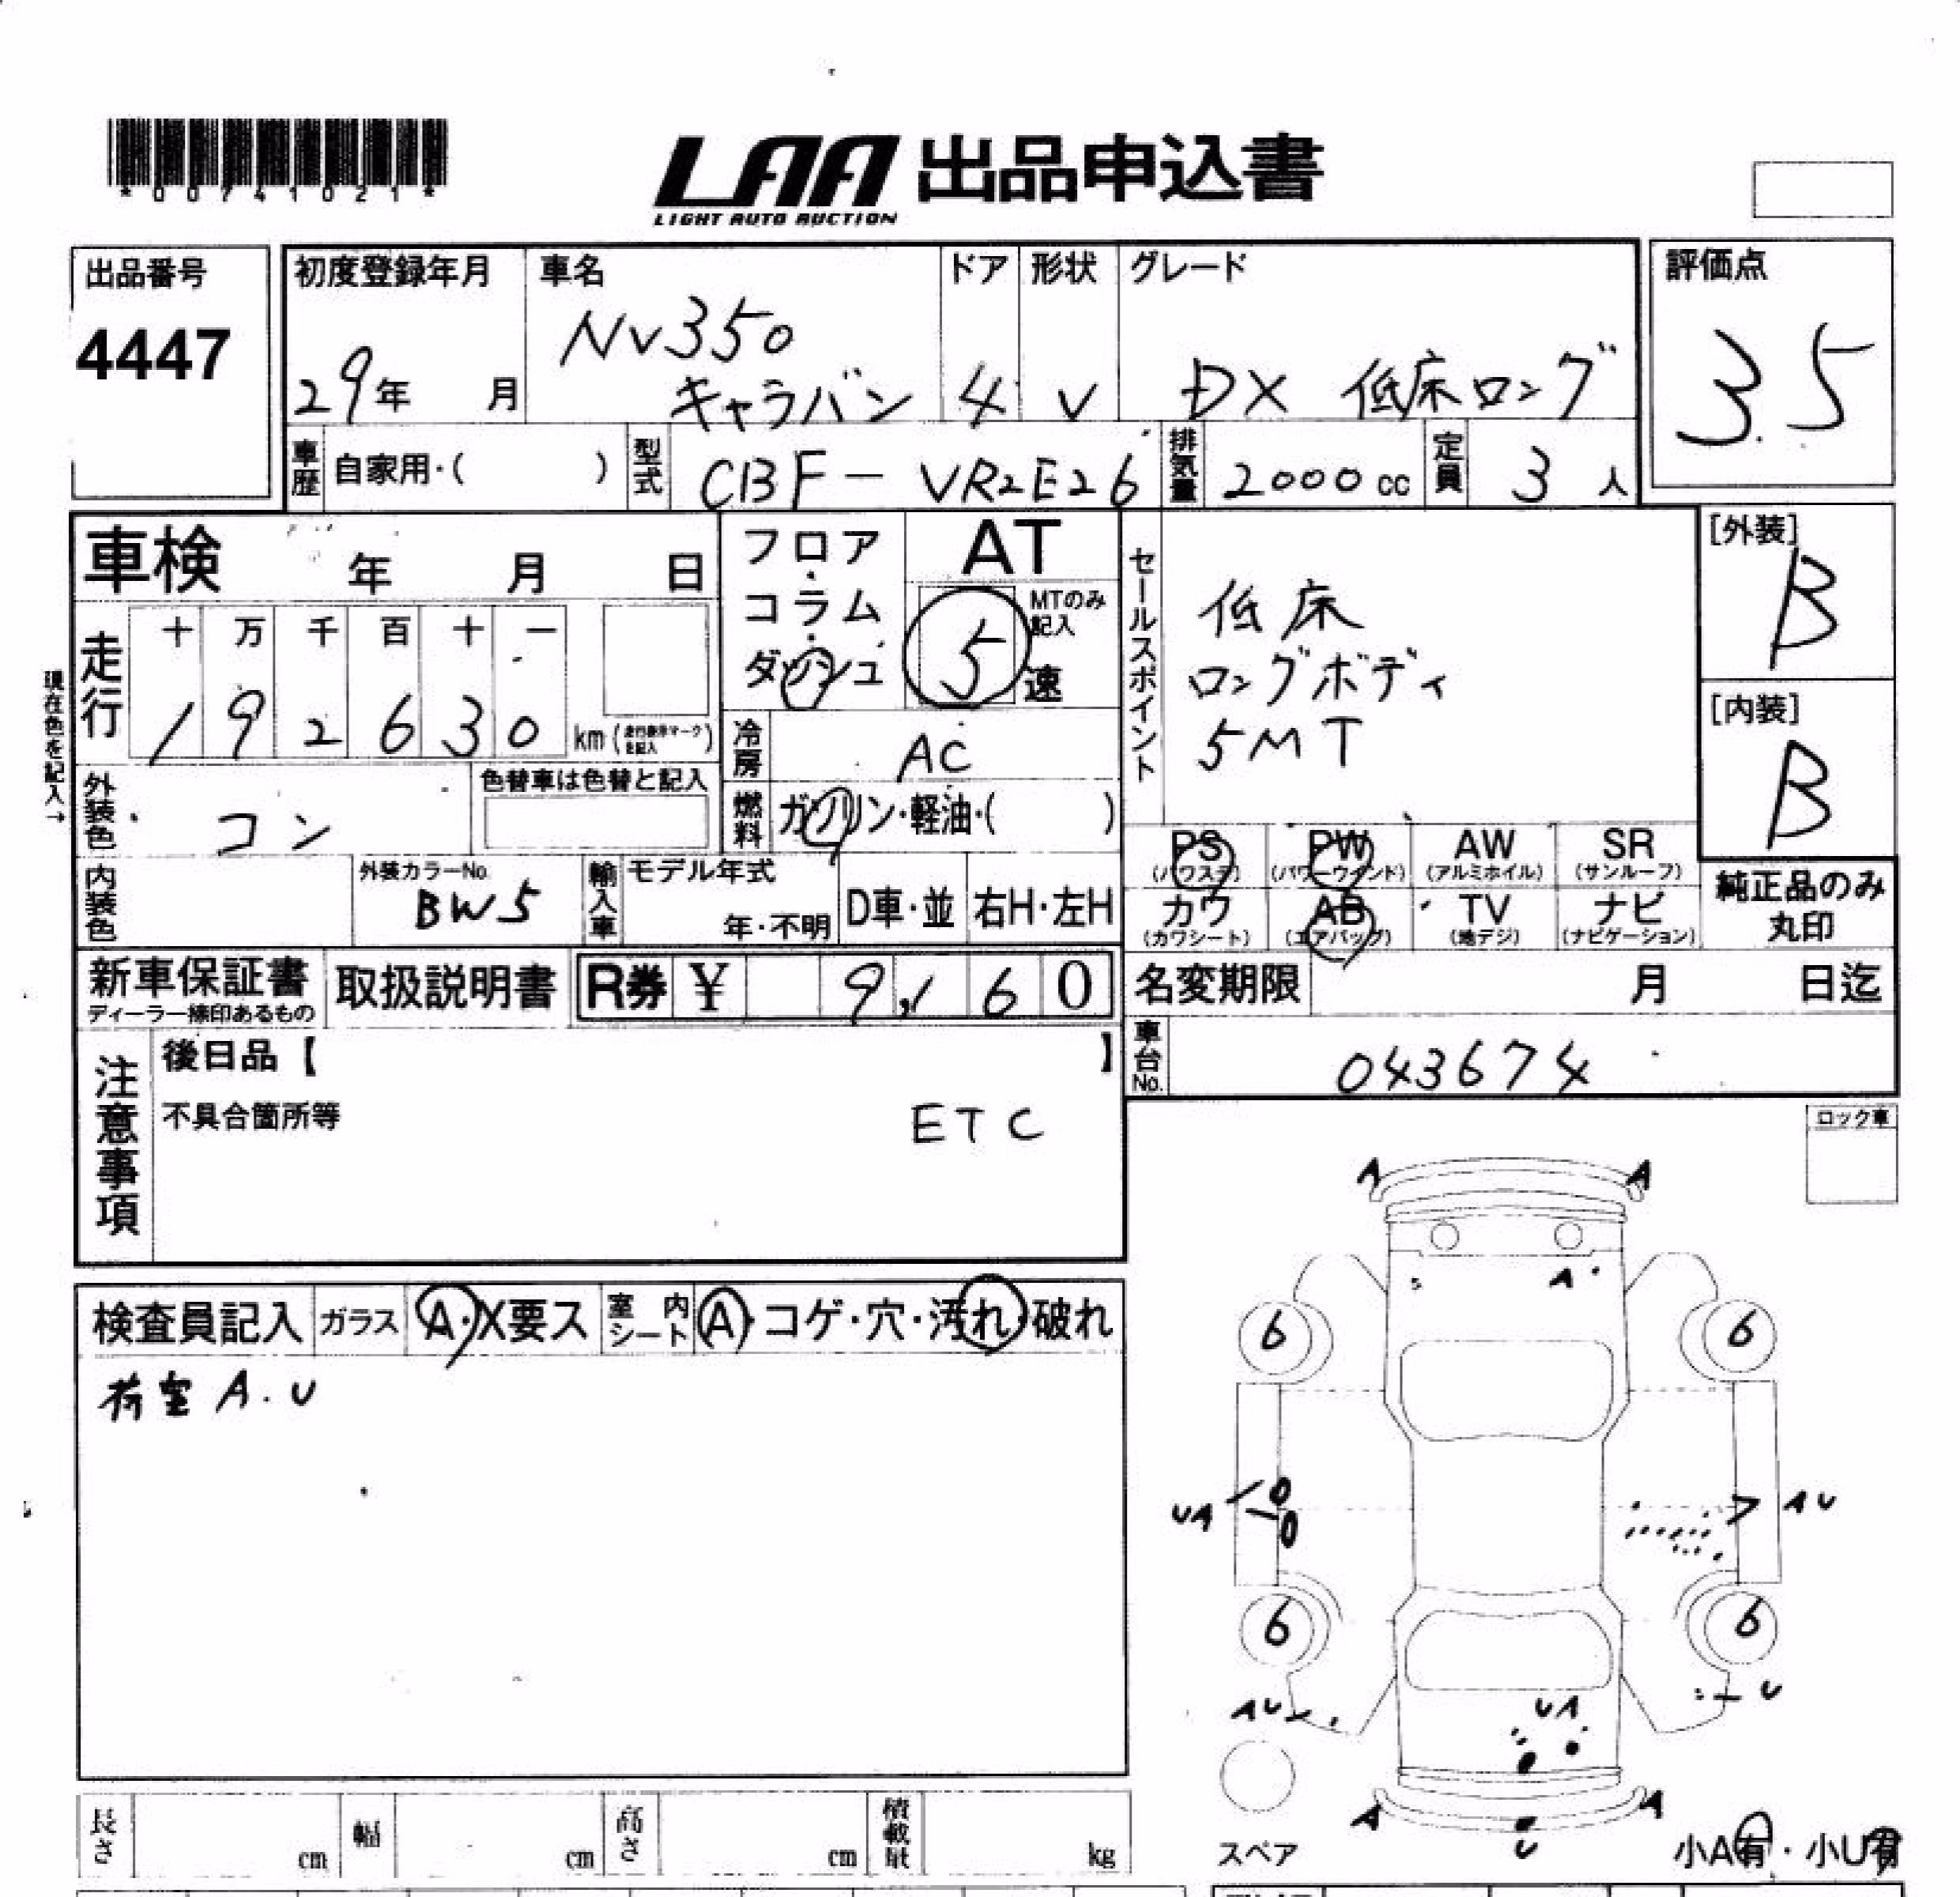 *00741021*
LAA 出品申込書
LIGHT AUTO AUCTION
出品番号
4447
初度登録年月
29年 月
車名
NV350
キャラバン
ドア
4
形状
V
グレード
DX 低床ロング
評価点
3.5
車歴
自家用・( )
型式
CBF-VR2E26
排気量
2000cc
定員
3人
車検 年 月 日
フロア・コラム・ダッシュ
AT
5速
MTのみ記入
セールスポイント
低床
ロングボディ
5MT
[外装]
B
[内装]
B
現在色を記入→
走行
十 万 千 百 十 一
1 9 2 6 3 0 km
冷房
AC
外装色
コン
色替車は色替と記入
燃料
ガソリン・軽油・( )
内装色
外装カラーNo.
BW5
輸入車
モデル年式
年・不明
D車・並
右H・左H
PS
(パワステ)
PW
(パワーウインド)
AW
(アルミホイル)
SR
(サンルーフ)
カワ
(カワシート)
AB
(エアバッグ)
TV
(地デジ)
ナビ
(ナビゲーション)
純正品のみ
丸印
新車保証書
ディーラー捺印あるもの
取扱説明書
R券 ¥ 9,160
名変期限 月 日迄
車台No.
043674
注意事項
後日品【 】
不具合箇所等
ETC
ロック車
検査員記入
ガラス
A・X要ス
室内シート
A・コゲ・穴・汚れ・破れ
荷室 A.U
A A
A
6 6
UA
AU
6 6
AU
U
UA
A A
U
スペア
小A有・小U有
長さ cm
幅 cm
高さ cm
積載量 kg